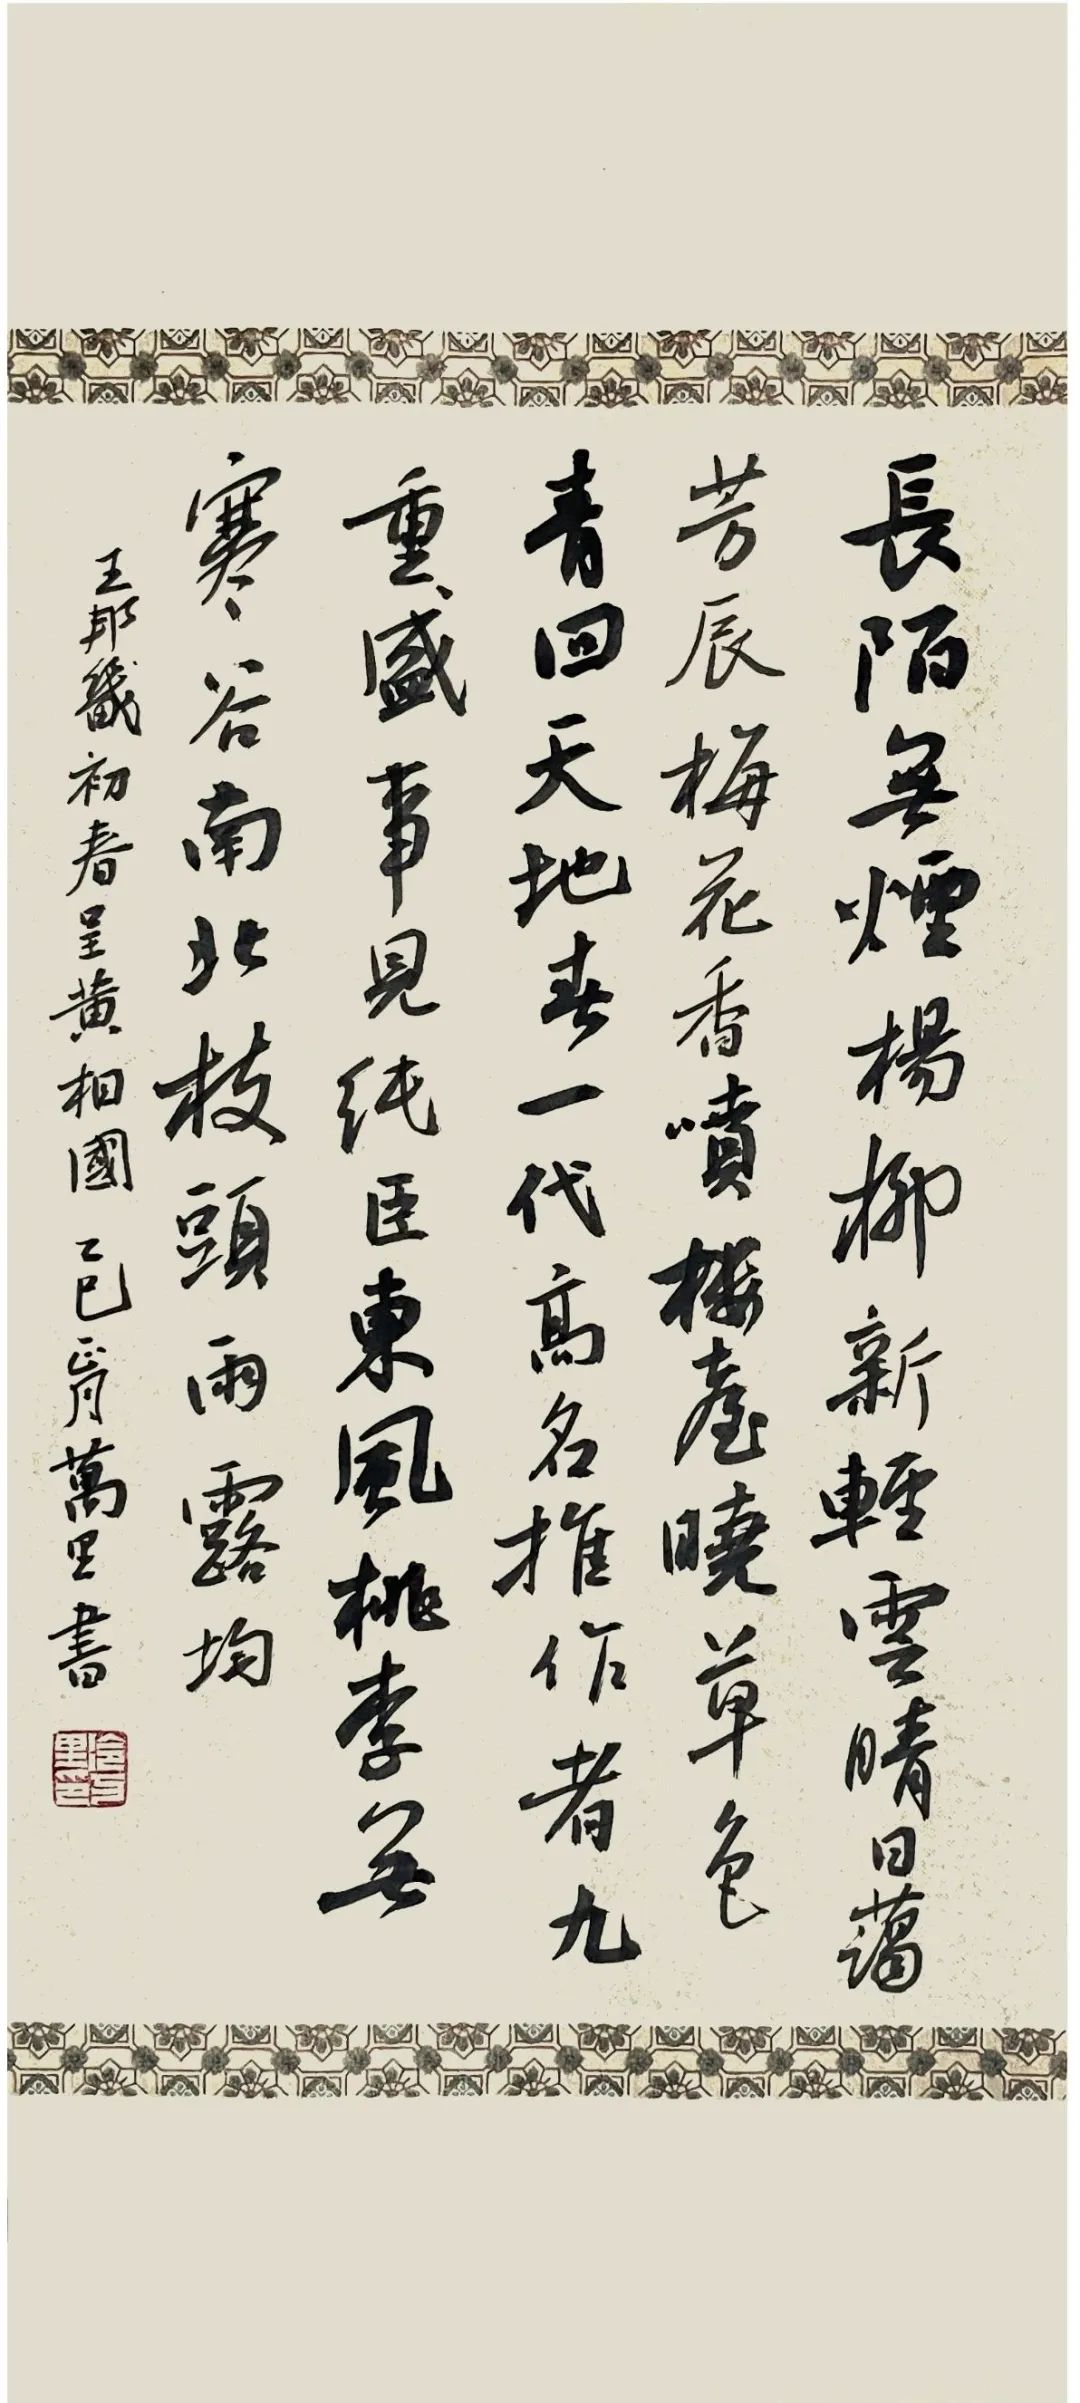 長陌無煙楊柳新輕雲晴日藹
芳辰梅花香噴樓臺曉草色
青回天地春一代高名推作者九
重盛事見純臣東風桃李無
寒谷南北枝頭雨露均
王邦畿初春呈黃相國 乙巳正月萬里書